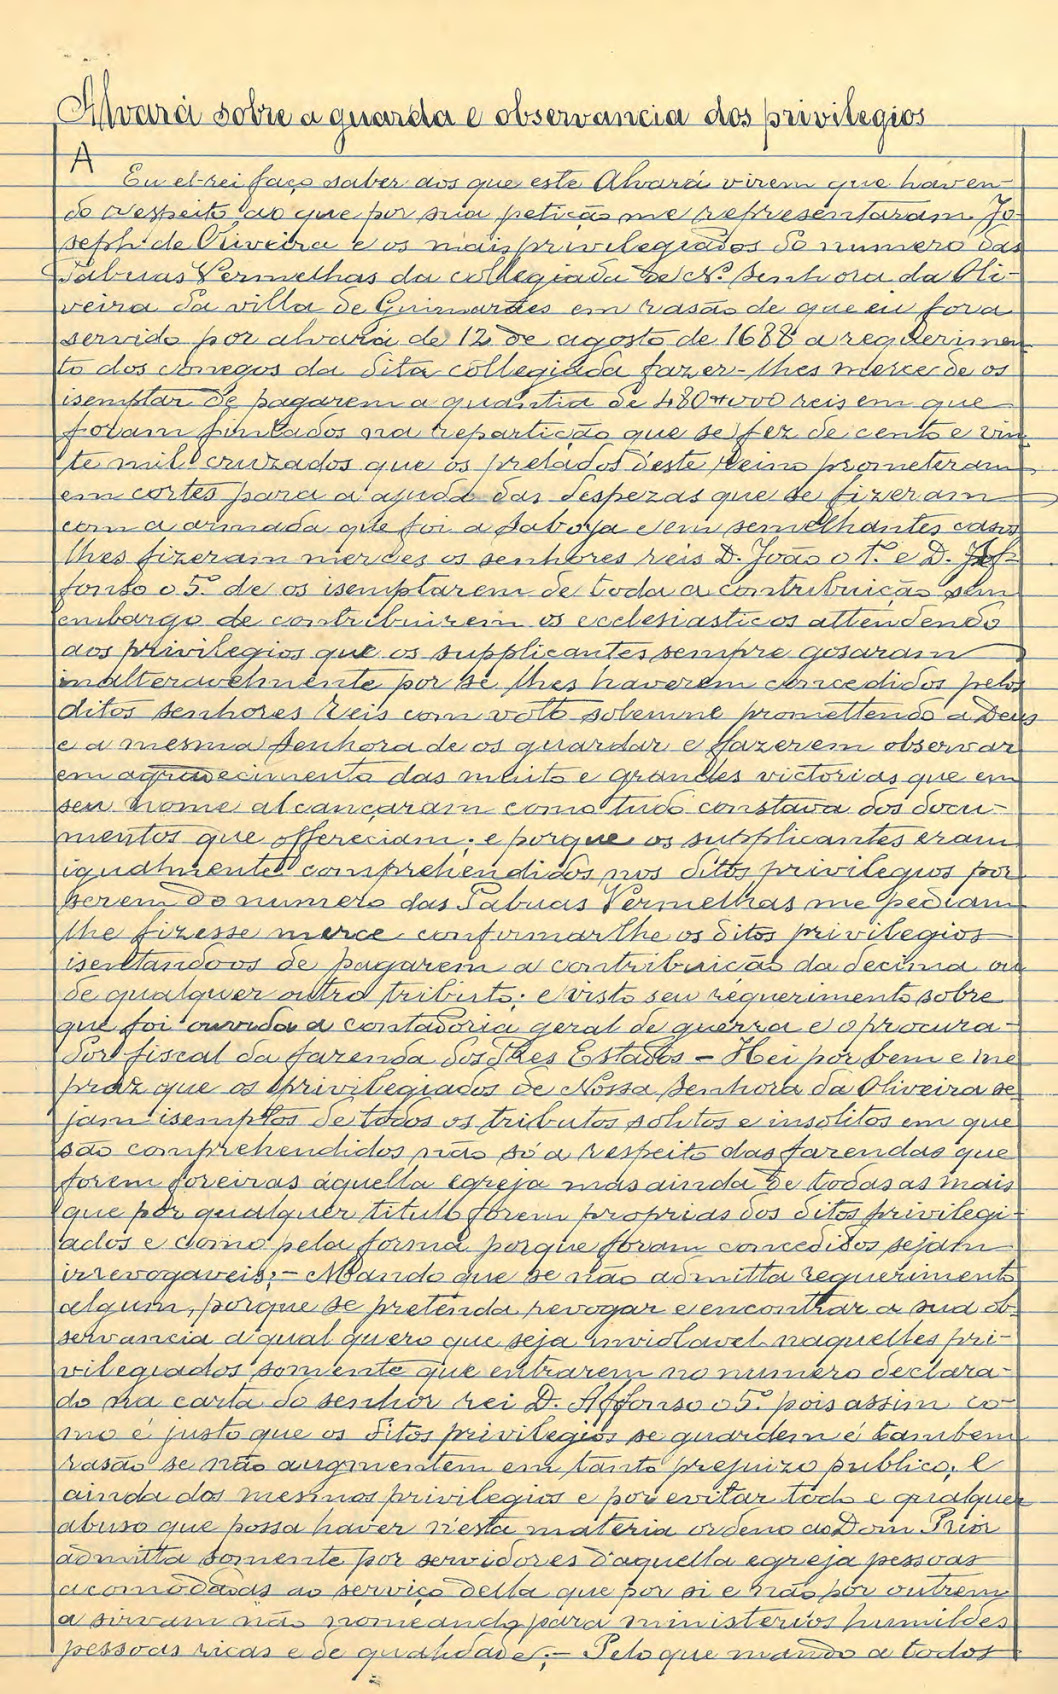 Alvará sobre a guarda e observancia dos privilegios
A
Eu el-rei faço saber aos que este Alvará virem que haven-
do respeito ao que por sua petição me representaram Jo-
seph de Oliveira e os mais privilegiados do numero das
Tabuas Vermelhas da collegiada de N.ª Senhora da Oli-
veira da villa de Guimarães em rasão de que eu fora
servido por alvará de 12 de agosto de 1688 a requerimen-
to dos conegos da dita collegiada fazer-lhes merce de os
isemptar de pagarem a quantia de 480#000 reis em que
foram fintados na repartição que se fez de cento e vin-
te mil cruzados que os prelados d'este Reino prometeram
em cortes para a ajuda das despezas que se fizeram
com a armada que foi a Saboya e em semelhantes casos
lhes fizeram merces os senhores reis D. João o 1.º e D. Af-
fonso o 5.º de os isemptarem de toda a contribuição sem
embargo de contribuirem os ecclesiasticos attendendo
aos privilegios que os supplicantes sempre gosaram
inalteravelmente por se lhes haverem concedidos pelos
ditos senhores Reis com voto solemne promettendo a Deus
e a mesma Senhora de os guardar e fazerem observar
em agradecimento das muito e grandes victorias que em
seu nome alcançaram como tudo constava dos docu-
mentos que offereciam; e porque os supplicantes eram
igualmente comprehendidos nos ditos privilegios por
serem do numero das Tabuas Vermelhas me pediam
lhe fizesse merce confirmar lhe os ditos privilegios
isentandoos de pagarem a contribuição da decima ou
de qualquer outro tributo; e visto seu requerimento sobre
que foi ouvida a contadoria geral de guerra e o procura-
dor fiscal da fazenda dos Tres Estados - Hei por bem e me
praz que os privilegiados de Nossa Senhora da Oliveira se-
jam isemptos de todos os tributos solitos e insolitos em que
são comprehendidos não só a respeito das fazendas que
forem foreiras áquella egreja mas ainda de todas as mais
que por qualquer titulo forem proprias dos ditos privilegi-
ados e como pela forma porque foram concedidos sejam
irrevogaveis; - Mando que se não admitta requerimento
algum, porque se pretenda revogar e encontrar a sua ob-
servancia a qual quero que seja inviolavel naquelles pri-
vilegiados somente que entrarem no numero declara-
do na carta do senhor rei D. Affonso o 5.º pois assim co-
mo é justo que os ditos privilegios se guardem é tambem
rasão se não augmentem em tanto prejuizo publico; E
ainda dos mesmos privilegios e por evitar todo e qualquer
abuso que possa haver n'esta materia ordeno ao Dom Prior
admitta somente por servidores d'aquella egreja pessoas
acomodadas ao serviço della que por si e não por outrem
a sirvam não nomeando para ministerios humildes
pessoas ricas e de qualidade; - Pelo que mando a todos